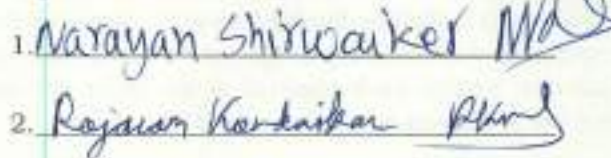 1. Narayan Shirwaiker
2. Rajaram Kandaikar